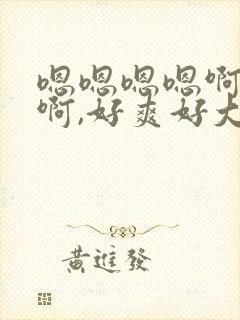 嗯嗯嗯嗯啊
啊,好爽好大
黄進發